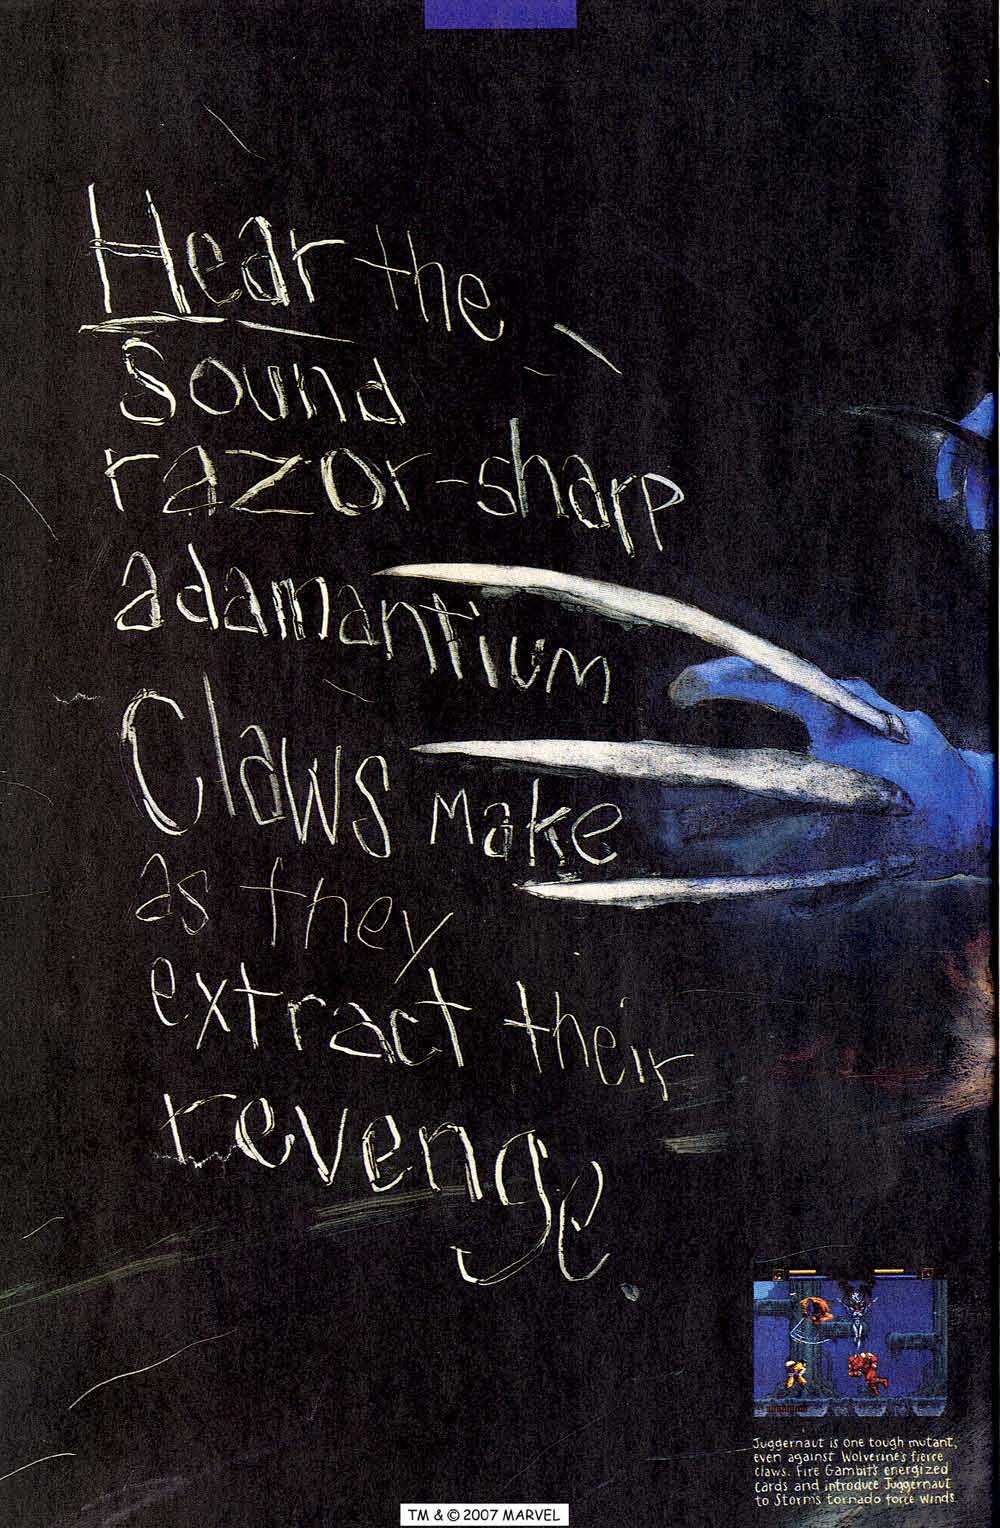 Hear the
Sound
razor-sharp
adamantium
Claws make
as they
extract their
revenge.
Juggernaut is one tough mutant,
even against Wolverine's fierce
claws. Fire Gambit's energized
cards and introduce Juggernaut
to Storm's tornado force winds.
TM & © 2007 MARVEL